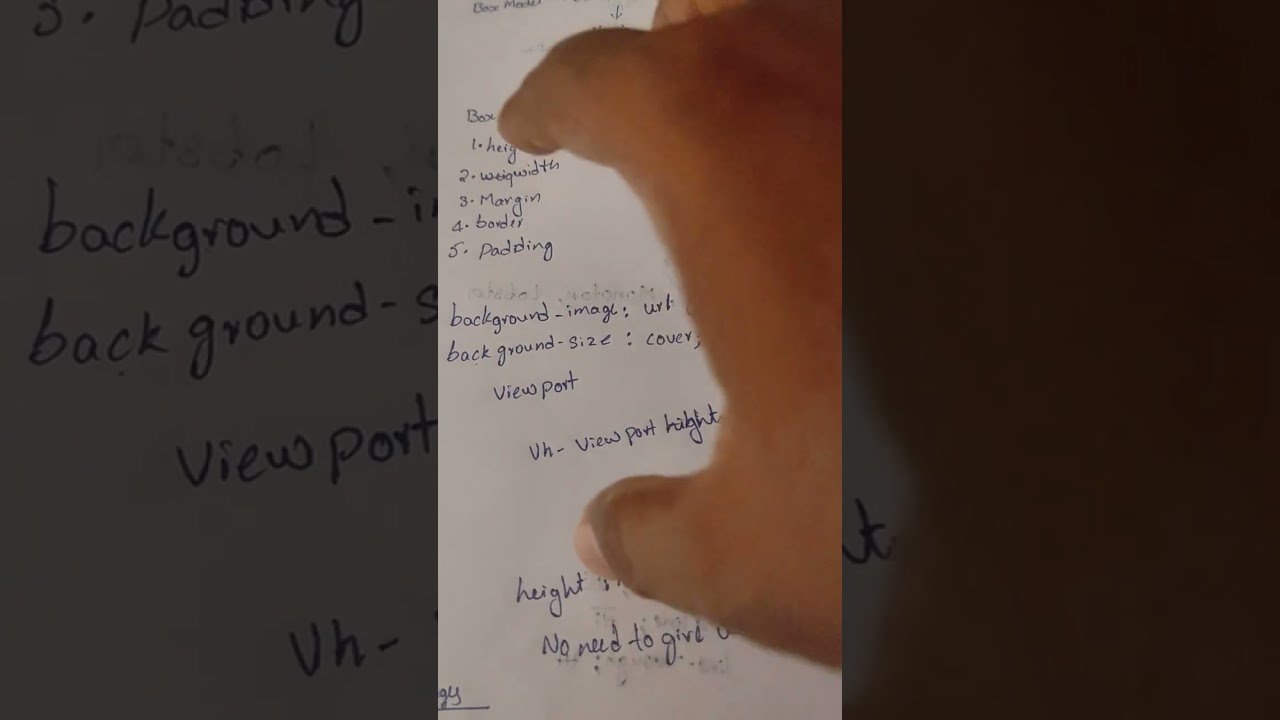 Box Model
Box
1. heig
2. weiqwidth
3. Margin
4. border
5. Padding
background-image: url
background-size : cover;
viewport
Vh- viewport height
height :
No need to give